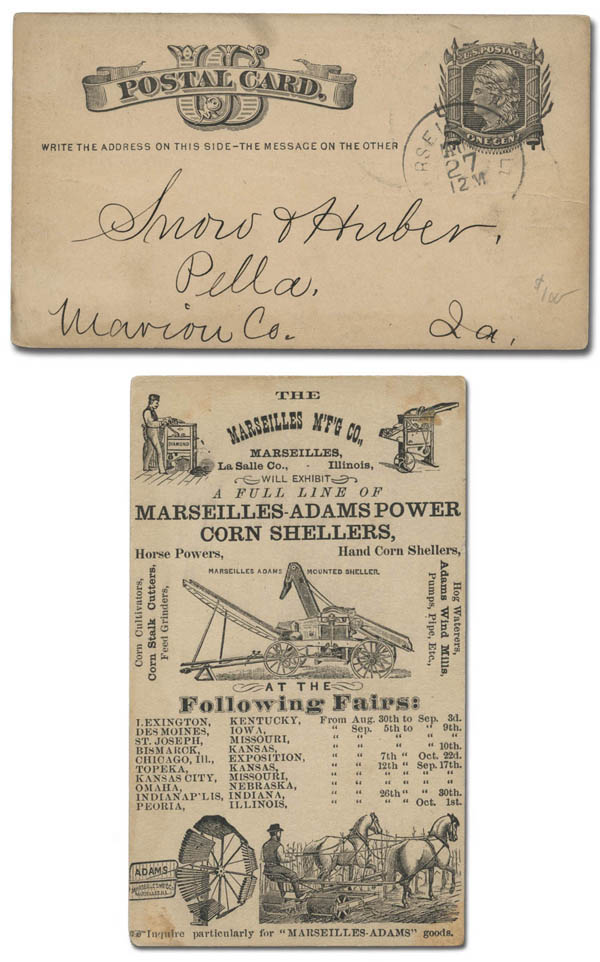 U.S. POSTAGE
US
POSTAL CARD.
ONE CENT
WRITE THE ADDRESS ON THIS SIDE–THE MESSAGE ON THE OTHER
7
12 M
Snow & Huber,
Pella,
Marion Co. Ia,
$1.00
THE
MARSEILLES M'F'G CO.,
MARSEILLES,
LA SALLE CO., - ILLINOIS,
WILL EXHIBIT
A FULL LINE OF
MARSEILLES-ADAMS POWER
CORN SHELLERS,
Horse Powers, Hand Corn Shellers,
DIAMOND
MARSEILLES ADAMS MOUNTED SHELLER.
Corn Cultivators,
Corn Stalk Cutters,
Feed Grinders,
Hog Waterers,
Adams Wind Mills,
Pumps, Pipe, Etc.,
AT THE
Following Fairs:
LEXINGTON, KENTUCKY, From Aug. 30th to Sep. 3d.
DES MOINES, IOWA, " Sep. 5th to " 9th.
ST. JOSEPH, MISSOURI, " " " " " "
BISMARCK, KANSAS, " " " " " 10th.
CHICAGO, Ill., EXPOSITION, " " 7th " Oct. 22d.
TOPEKA, KANSAS, " " 12th " Sep. 17th.
KANSAS CITY, MISSOURI, " " " " " "
OMAHA, NEBRASKA, " " " " " "
INDIANAP'LIS, INDIANA, " " 26th " " 30th.
PEORIA, ILLINOIS, " " " " Oct. 1st.
ADAMS
Inquire particularly for "MARSEILLES-ADAMS" goods.